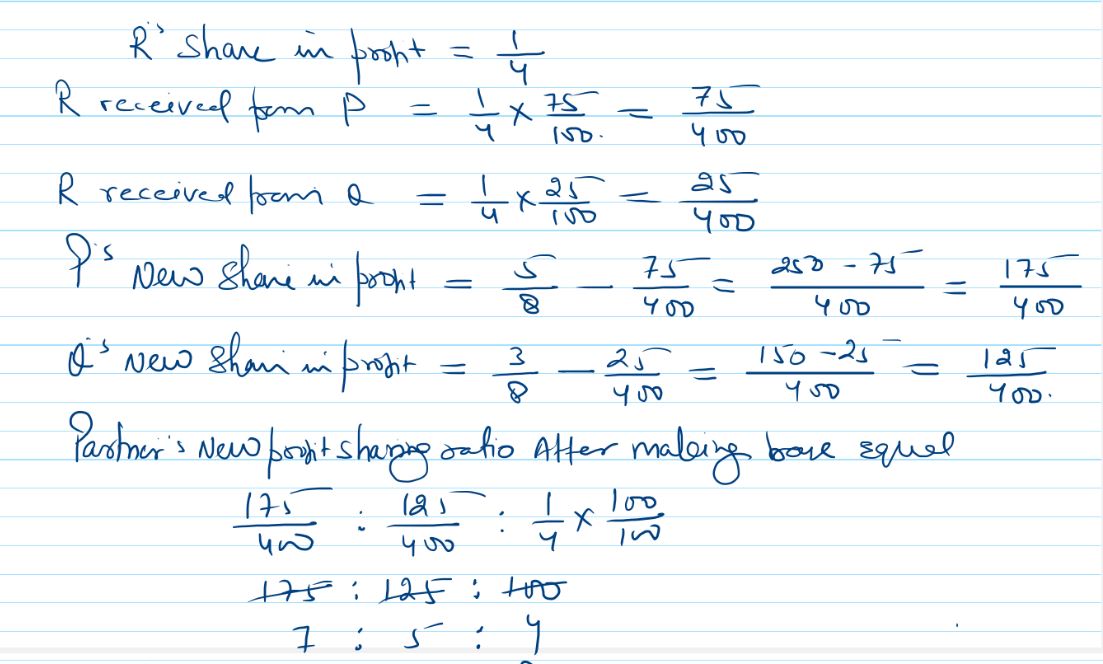 R's Share in profit = 1/4
R received from P = 1/4 × 75/100. = 75/400
R received from Q = 1/4 × 25/100 = 25/400
P's New Share in profit = 5/8 - 75/400 = 250 - 75/400 = 175/400
Q's New Share in profit = 3/8 - 25/400 = 150 - 25/400 = 125/400.
Partner's New profit sharing ratio After making base equal
175/400 : 125/400 : 1/4 × 100/100
175 : 125 : 100
7 : 5 : 4